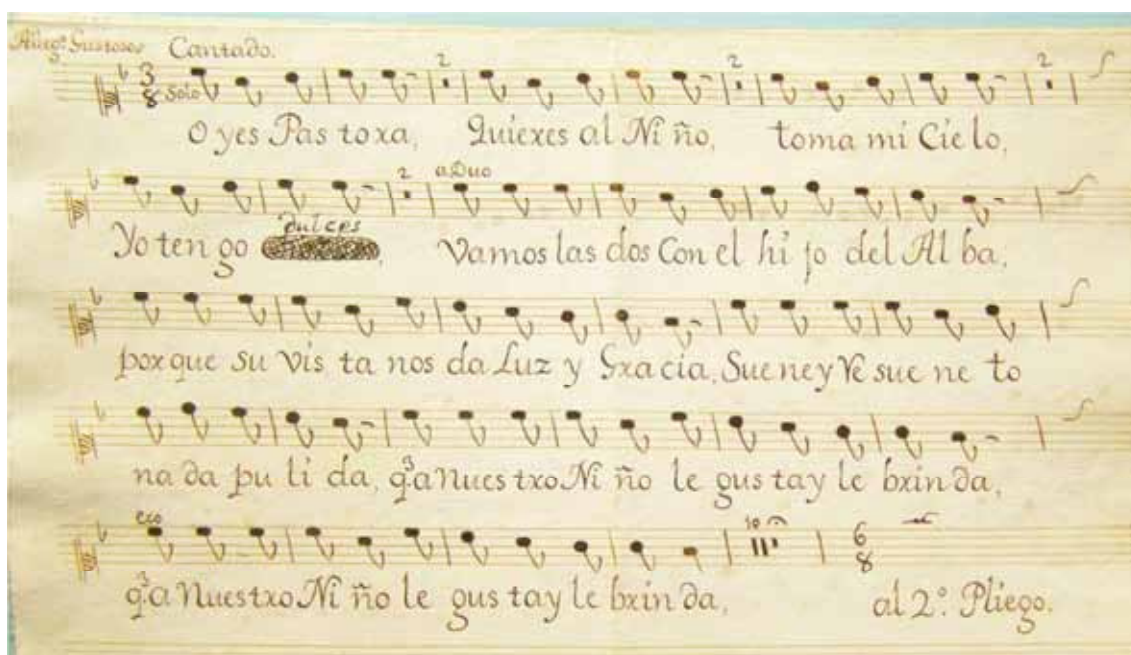 Allegº. Gustoso Cantado.
2 2 2
3 8 Solo
O yes Pas tora, Quieres al Ni ño, toma mi Cie lo,
2 a Duo
dulces
Yo ten go Vamos las dos Con el hi jo del Al ba,
porque su vis ta nos da Luz y Gracia, Sue ne y Ve sue ne to
na da pu li da, q.ª a Nues tro Ni ño le gus ta y le brin da,
eco 10 6 8
q.ª a Nuestro Ni ño le gus ta y le brin da, al 2º. Pliego.